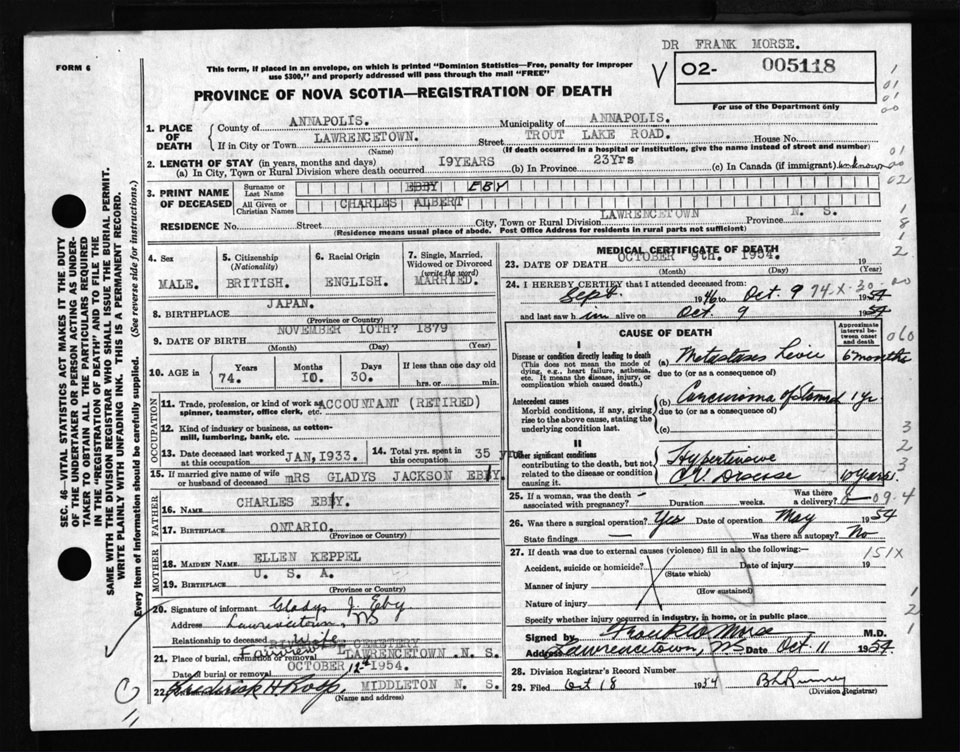 DR FRANK MORSE.
FORM 6
This form, if placed in an envelope, on which is printed "Dominion Statistics—Free, penalty for improper
use $300," and properly addressed will pass through the mail "FREE"
02- 005118
For use of the Department only
PROVINCE OF NOVA SCOTIA—REGISTRATION OF DEATH
SEC. 46—VITAL STATISTICS ACT MAKES IT THE DUTY
OF THE UNDERTAKER OR PERSON ACTING AS UNDER-
TAKER TO OBTAIN ALL THE PARTICULARS REQUIRED
IN THE "REGISTRATION OF DEATH" AND TO FILE THE
SAME WITH THE DIVISION REGISTRAR WHO SHALL ISSUE THE BURIAL PERMIT.
WRITE PLAINLY WITH UNFADING INK. THIS IS A PERMANENT RECORD.
Every item of information should be carefully supplied. (See reverse side for instructions.)
1. PLACE OF DEATH
County of ANNAPOLIS. Municipality of ANNAPOLIS.
If in City or Town LAWRENCETOWN. Street TROUT LAKE ROAD. House No.
(Name) (If death occurred in a hospital or institution, give the name instead of street and number)
2. LENGTH OF STAY (in years, months and days)
(a) In City, Town or Rural Division where death occurred 19YEARS (b) In Province 23Yrs (c) In Canada (if immigrant) unknown
3. PRINT NAME OF DECEASED
Surname or Last Name EBBY EBY
All Given or Christian Names CHARLES ALBERT
RESIDENCE No. Street City, Town or Rural Division LAWRENCETOWN Province N. S.
(Residence means usual place of abode. Post Office Address for residents in rural parts not sufficient)
4. Sex MALE.
5. Citizenship (Nationality) BRITISH.
6. Racial Origin ENGLISH.
7. Single, Married, Widowed or Divorced (write the word) MARRIED.
8. BIRTHPLACE JAPAN.
(Province or Country)
9. DATE OF BIRTH NOVEMBER 10TH? 1879
(Month) (Day) (Year)
10. AGE in Years 74. Months 10. Days 30. If less than one day old hrs. or min.
OCCUPATION
11. Trade, profession, or kind of work as spinner, teamster, office clerk, etc. ACCOUNTANT (RETIRED)
12. Kind of industry or business, as cotton-mill, lumbering, bank, etc.
13. Date deceased last worked at this occupation JAN, 1933.
14. Total yrs. spent in this occupation 35
15. If married give name of wife or husband of deceased MRS GLADYS JACKSON EBY
FATHER
16. Name CHARLES EBY.
17. Birthplace ONTARIO.
(Province or Country)
MOTHER
18. Maiden Name ELLEN KEPPEL
19. Birthplace U. S. A.
(Province or Country)
20. Signature of informant Gladys J. Eby
Address Lawrencetown, NS
Relationship to deceased Wife
21. Place of burial, cremation or removal Fairview CEMETERY LAWRENCETOWN N. S.
Date of burial or removal OCTOBER 12th 1954.
22. MIDDLETON N. S.
(Name and address)
MEDICAL CERTIFICATE OF DEATH
23. DATE OF DEATH OCTOBER 9th. 1954. 19
(Month) (Day) (Year)
24. I HEREBY CERTIFY that I attended deceased from:
Sept. 1946 to Oct. 9 1954
74-X-30-
and last saw him alive on Oct. 9 1954
CAUSE OF DEATH
Approximate interval between onset and death
I
Disease or condition directly leading to death
(This does not mean the mode of dying, e.g., heart failure, asthenia, etc. It means the disease, injury, or complication which caused death.)
(a) Metastases Liver 6 months
due to (or as a consequence of)
Antecedent causes
Morbid conditions, if any, giving rise to the above cause, stating the underlying condition last.
(b) Carcinoma of Stomach 1 yr
due to (or as a consequence of)
(c)
II
Other significant conditions contributing to the death, but not related to the disease or condition causing it.
Hypertensive
C.V. Disease 10 years.
25. If a woman, was the death associated with pregnancy? – Duration weeks. Was there a delivery?
26. Was there a surgical operation? Yes Date of operation May 1954
State findings — Was there an autopsy? No
27. If death was due to external causes (violence) fill in also the following:—
151X
Accident, suicide or homicide? Date of injury 19
(State which)
Manner of injury
(How sustained)
Nature of injury
Specify whether injury occurred in industry, in home, or in public place
Signed by Frank W Morse M.D.
Address Lawrencetown, NS Date Oct 11 1954.
28. Division Registrar's Record Number
29. Filed Oct 18 1954
(Division Registrar)